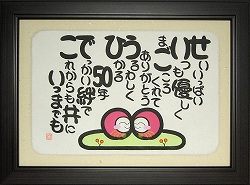 せいいっぱい
いつも優しく
まごころ
くれて
ありがとう
うるわしく
ひかる
50年
でっかい絆で
これからも共に
いつまでも